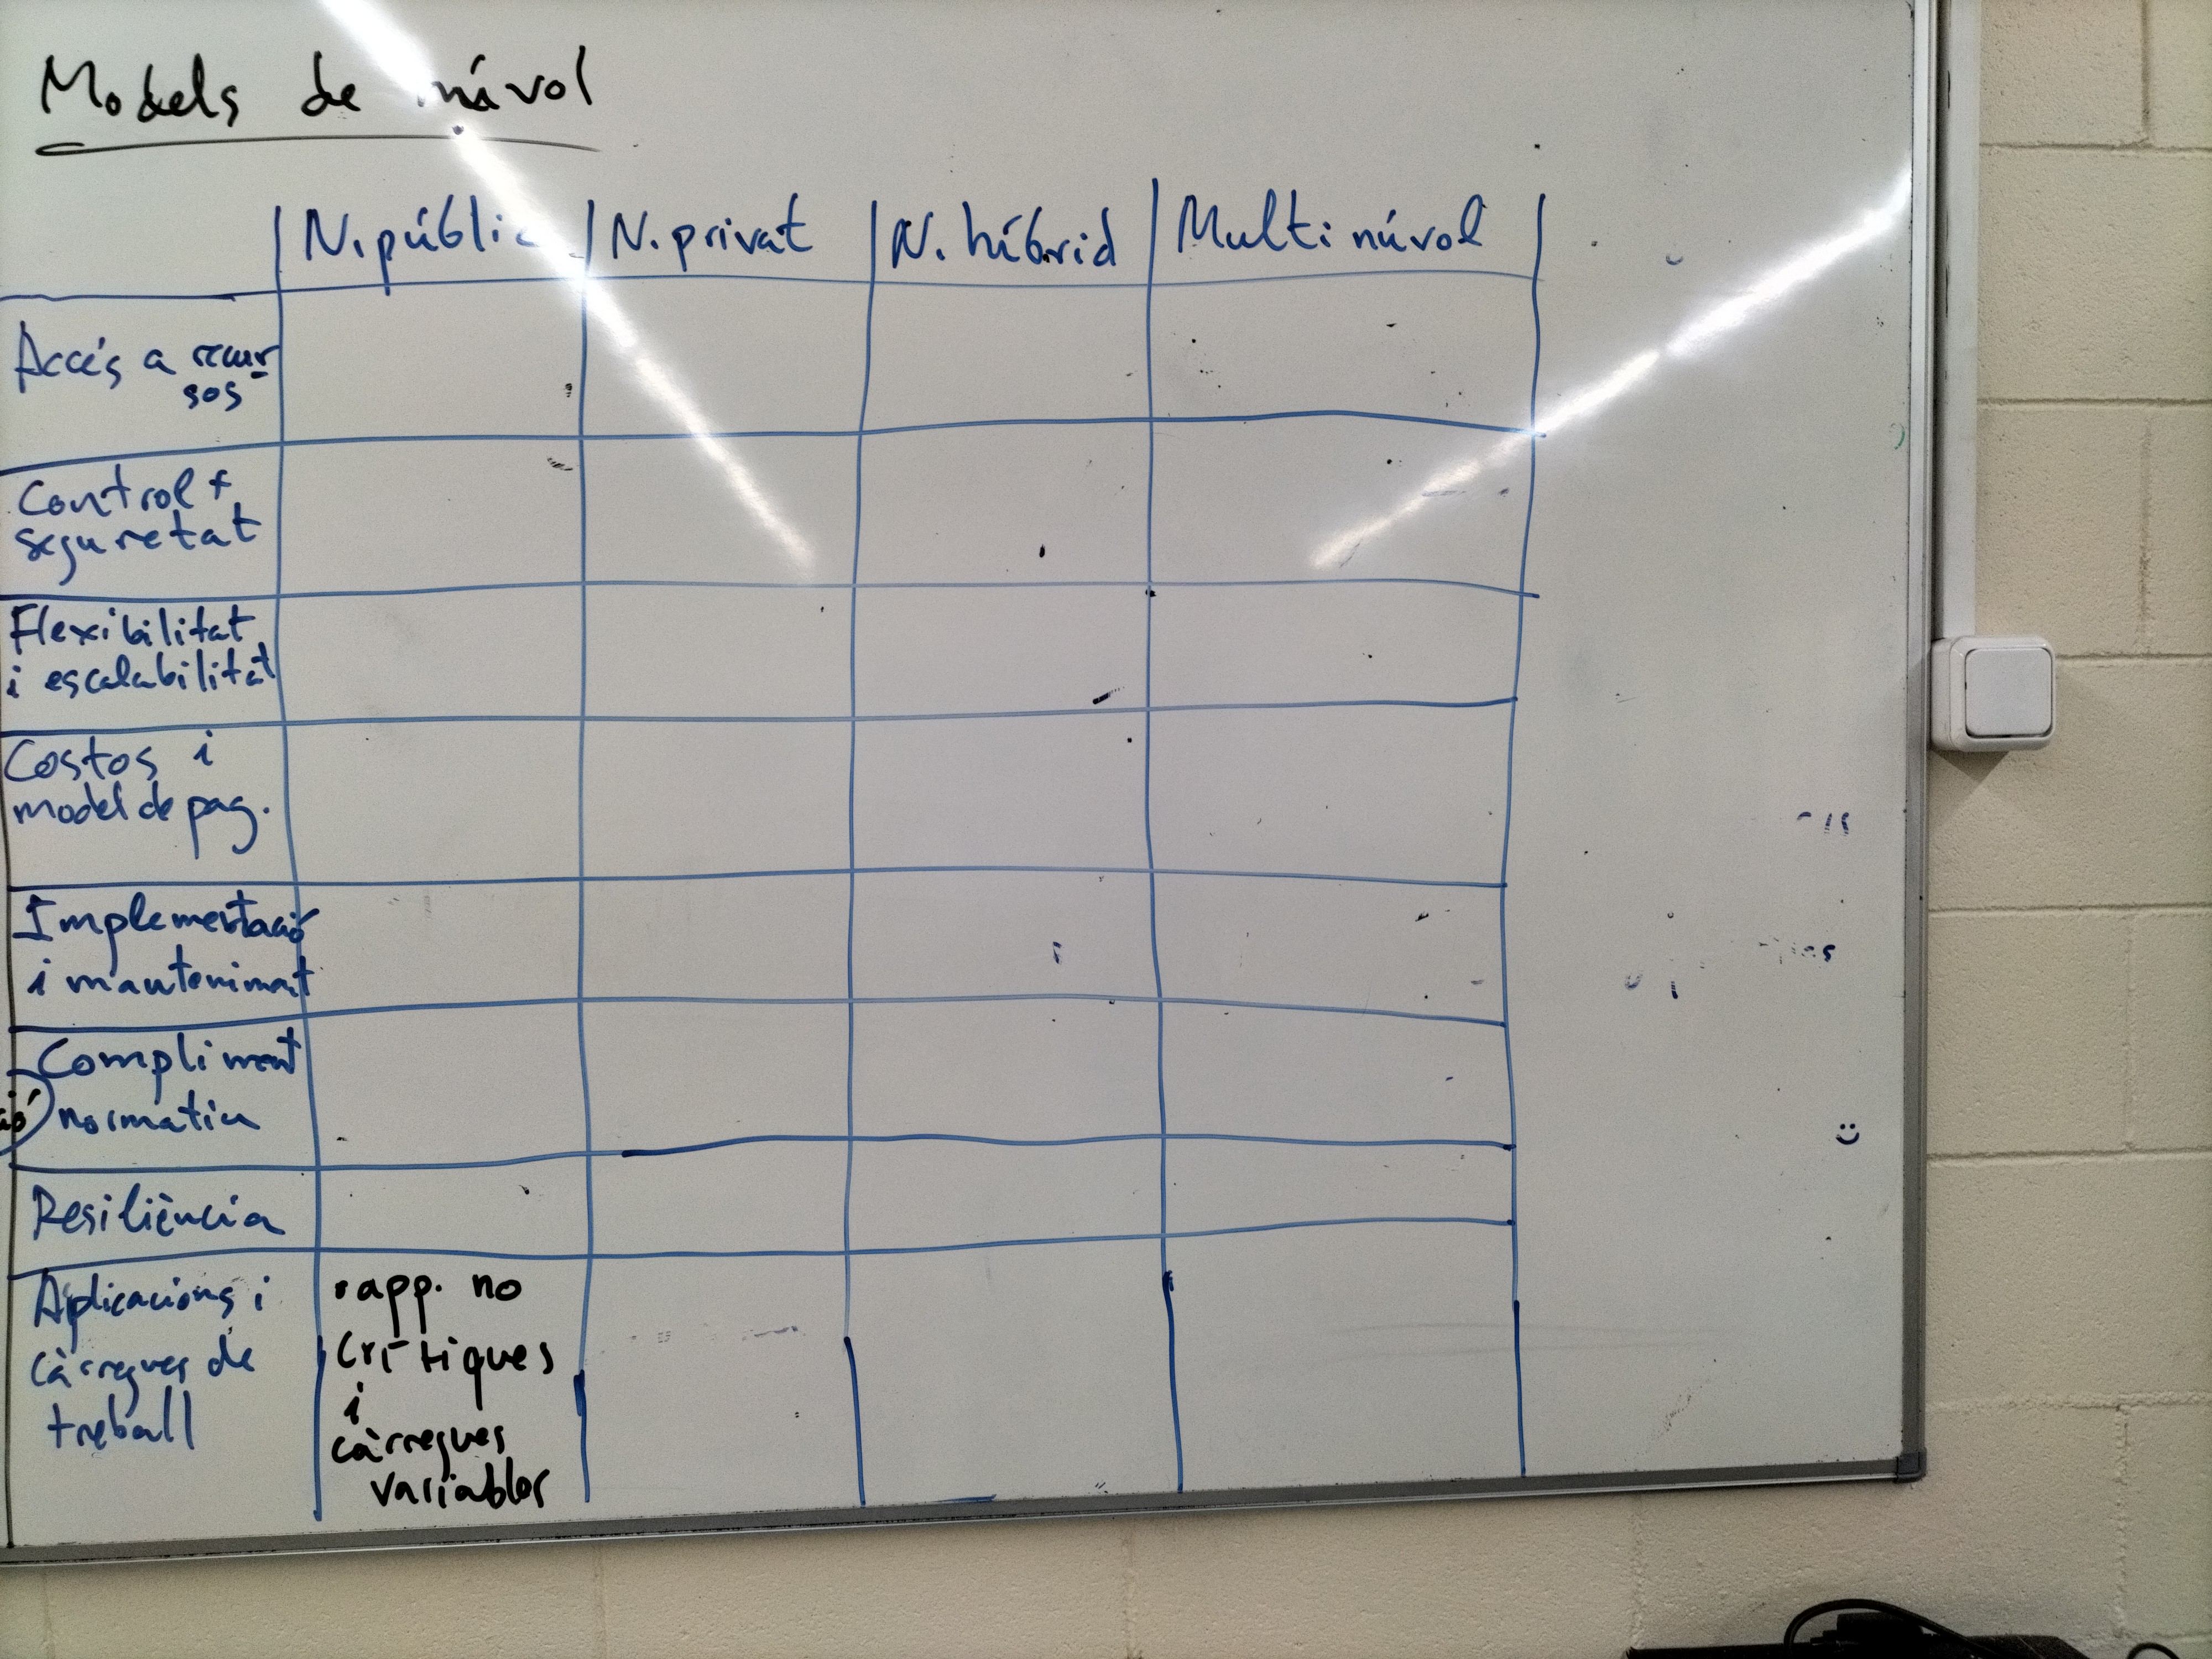 Models de núvol
N. públic N. privat N. híbrid Multi núvol
Accés a recur-
sos
Control +
seguretat
Flexibilitat
i escalabilitat
Costos i
model de pag.
Implementació
i manteniment
Compliment
normatiu
Resiliència
Aplicacions i
càrregues de
treball
· app. no
crítiques
i
càrregues
variables